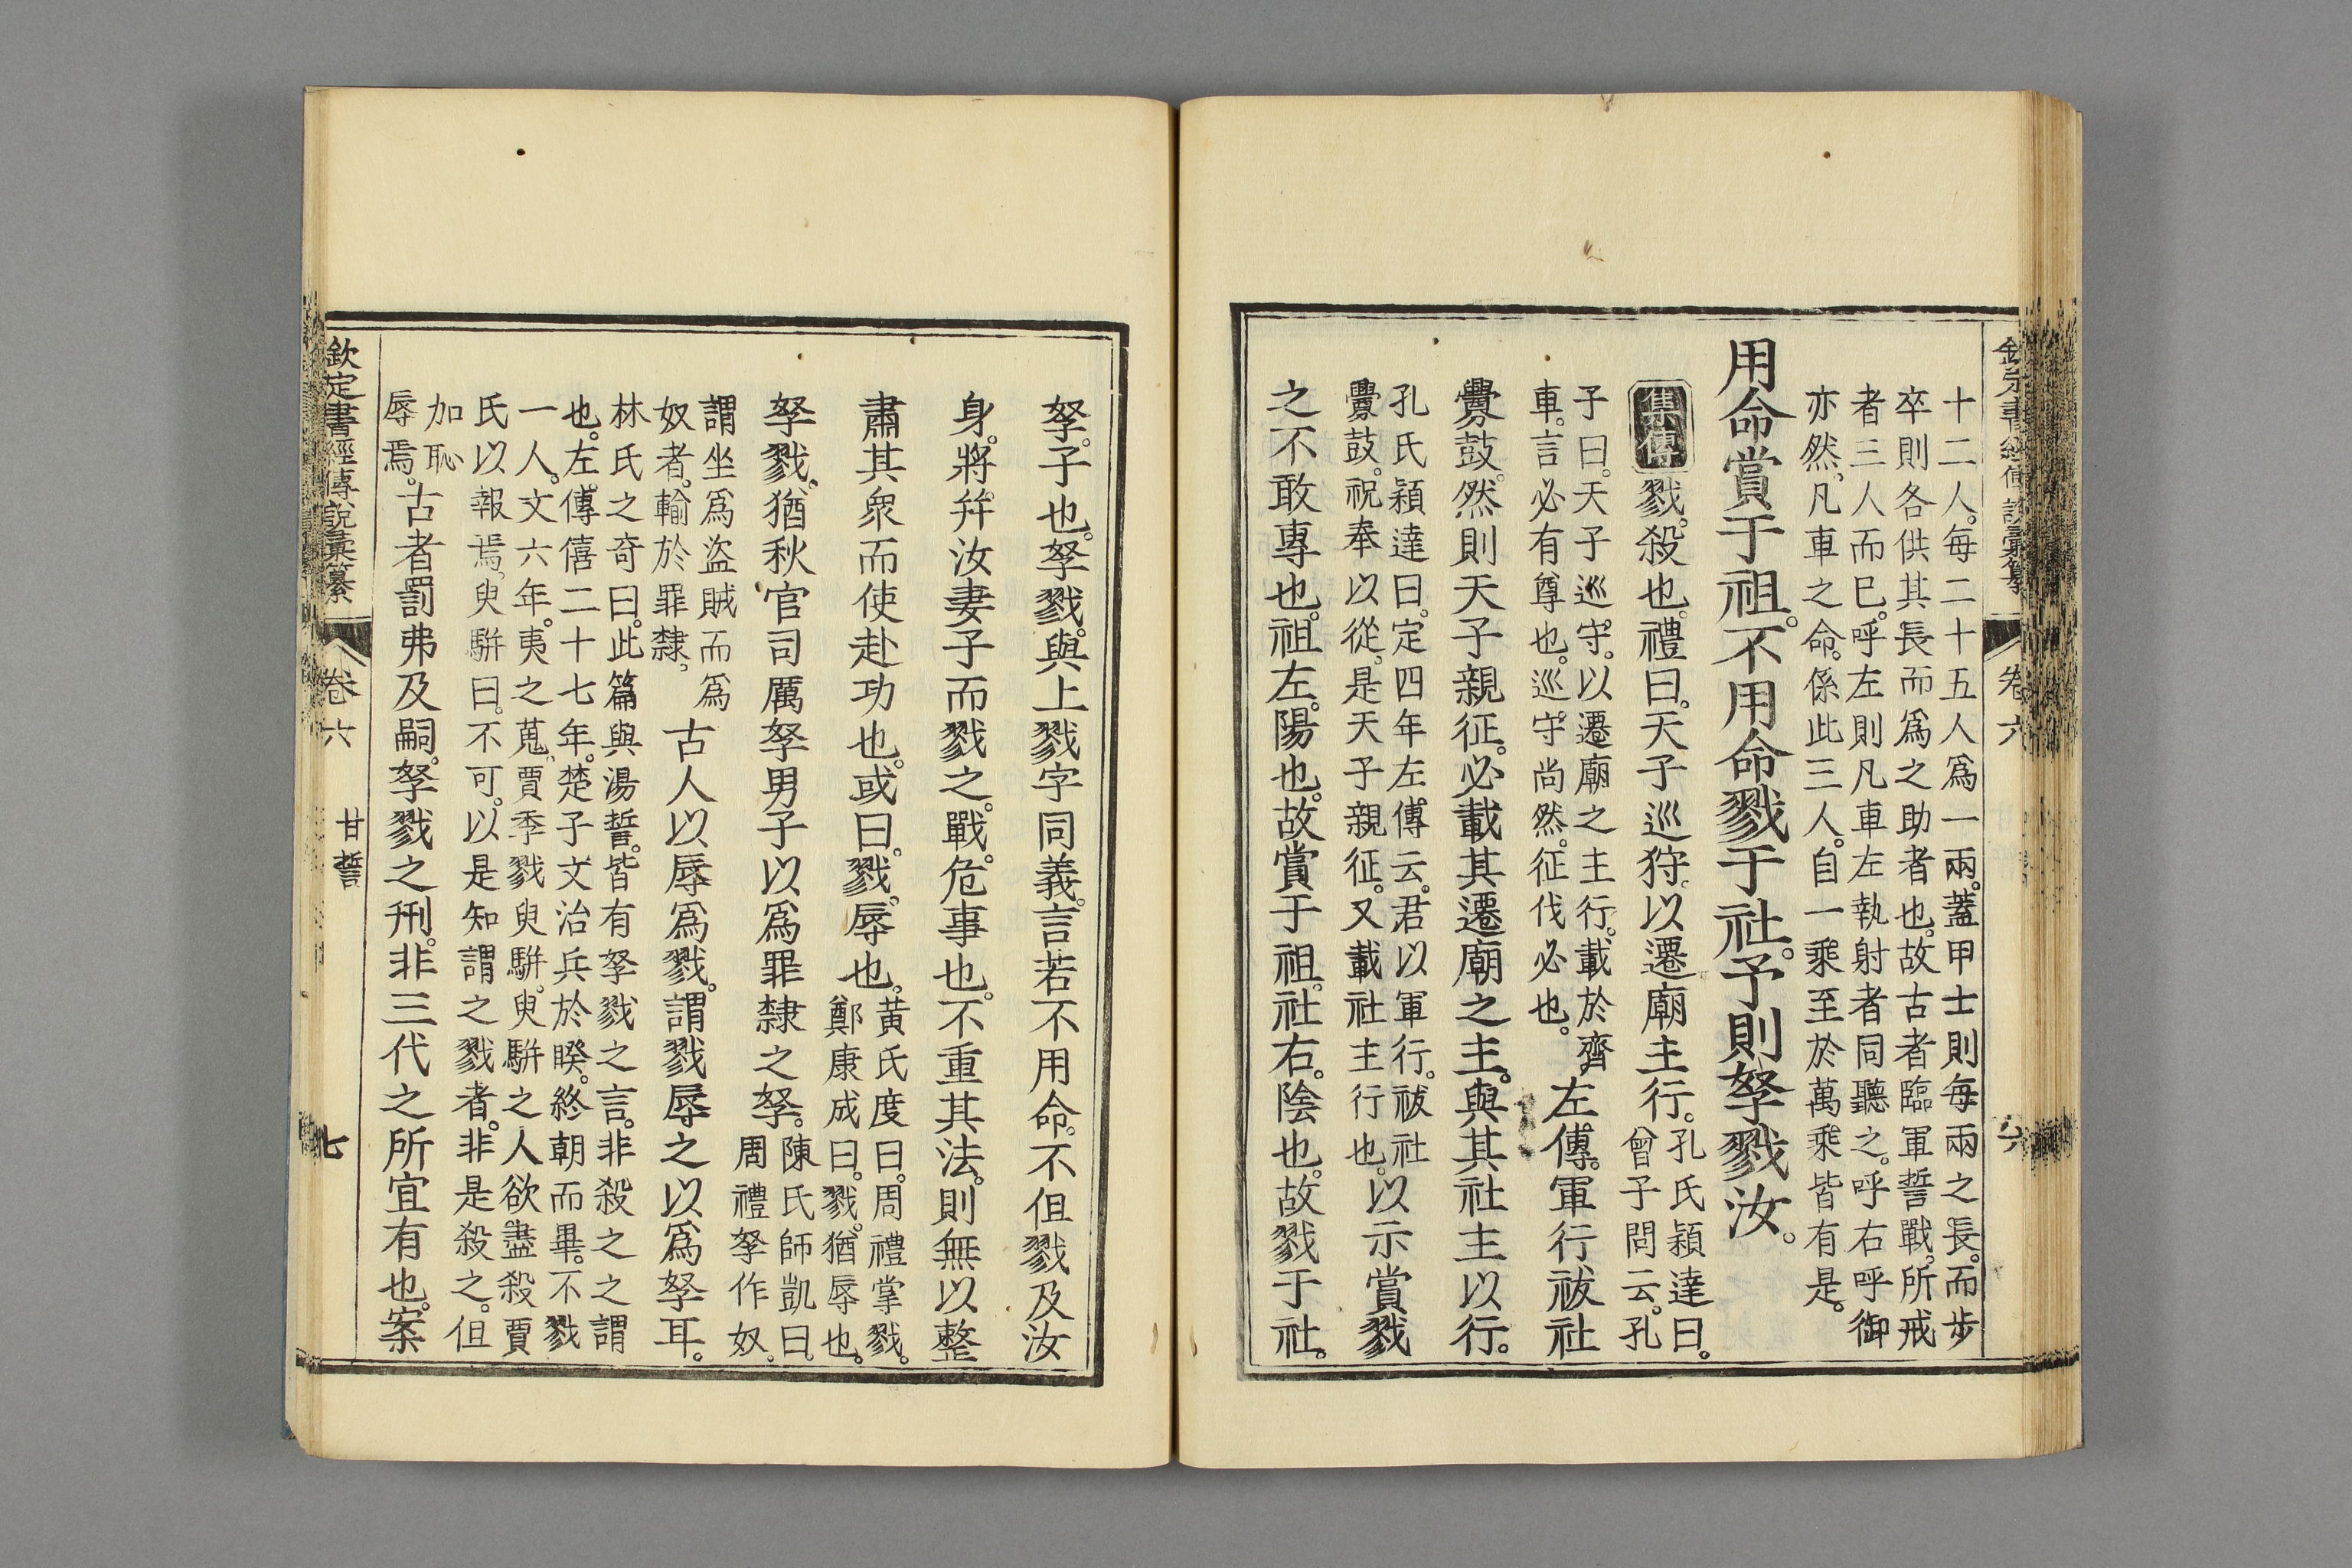 十二人。每二十五人爲一兩。蓋甲士則每兩之長。而步
卒則各供其長而爲之助者也。故古者臨軍誓戰。所戒
者三人而已。呼左則凡車左執射者同聽之。呼右呼御
亦然。凡車之命。係此三人。自一乘至於萬乘皆有是。
用命賞于祖。不用命戮于社。予則孥戮汝。
集傳
戮。殺也。禮曰。天子巡狩。以遷廟主行。
孔氏穎達曰。
曾子問云。孔
子曰。天子巡守。以遷廟之主行。載於齊
車。言必有尊也。巡守尚然。征伐必也。
左傳。軍行祓社
釁鼓。然則天子親征。必載其遷廟之主。與其社主以行。
孔氏穎達曰。定四年左傳云。君以軍行。祓社
釁鼓。祝奉以從。是天子親征。又載社主行也。
以示賞戮
之不敢專也。祖左。陽也。故賞于祖。社右。陰也。故戮于社。
孥。子也。孥戮。與上戮字同義。言若不用命。不但戮及汝
身。將幷汝妻子而戮之。戰。危事也。不重其法。則無以整
肅其衆而使赴功也。或曰。戮。辱也。
黃氏度曰。周禮掌戮。
鄭康成曰。戮。猶辱也。
孥戮。猶秋官司厲孥男子以爲罪隸之孥。
陳氏師凱曰。
周禮孥作奴。
謂坐爲盜賊而爲
奴者。輸於罪隸。
古人以辱爲戮。謂戮辱之以爲孥耳。
林氏之奇曰。此篇與湯誓。皆有孥戮之言。非殺之之謂
也。左傳僖二十七年。楚子文治兵於睽。終朝而畢。不戮
一人。文六年。夷之蒐。賈季戮臾駢。臾駢之人欲盡殺賈
氏以報焉。臾駢曰。不可。以是知謂之戮者。非是殺之。但
加恥
辱焉。
古者罰弗及嗣。孥戮之刑。非三代之所宜有也。案
欽定書經傳說彙纂
卷六
甘誓
七